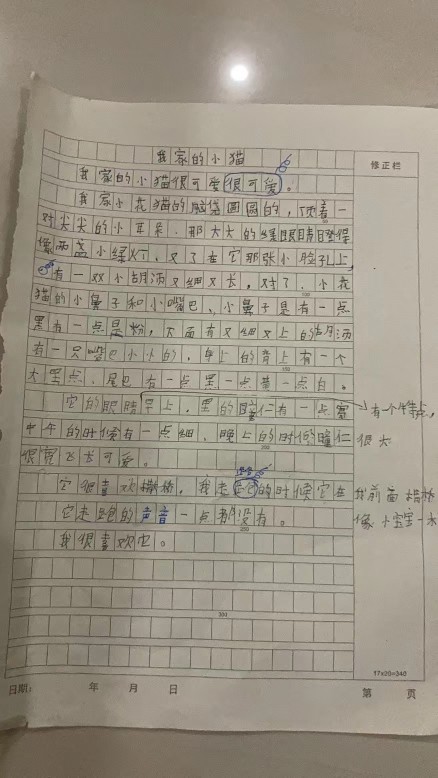 我家的小猫
修正栏
我家的小猫很可爱很可爱。
我家小花猫的脑袋圆圆的,顶着一
对尖尖的小耳朵,那大大的绿眼睛瞪得
像两盏小绿灯,又了在它那张小脸孔上,
有一双小胡须又细又长,对了,小花
猫的小鼻子和小嘴巴,小鼻子是有一点
黑有一点是粉,下面有又细又上的胡须
有一只嘴巴小小的,身上的背上有一个
大黑点,尾巴有一点黑一点黄一点白。
它的眼睛早上,黑的瞳仁有一点宽
有一个
中午的时候有一点细,晚上的时候瞳仁
很大
很可爱。
它很喜欢撒娇,我走它的时候它在
我前面
它走路的声音一点都没有。
像小宝宝一
我很喜欢它。
100
200
300
17×20=340
日期: 年 月 日
第 页